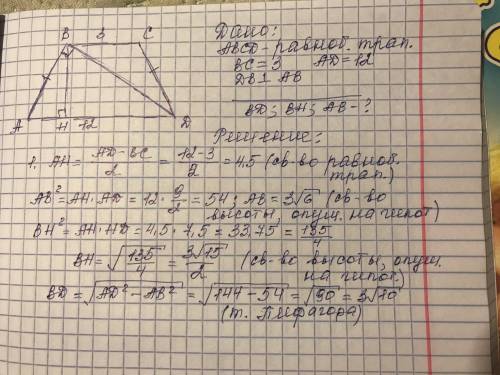 Дано:
ABCD - равноб. трап.
BC = 3 AD = 12
DB ⊥ AB
BD; BH; AB - ?
B 6 C
A H 12 D
Решение:
1. AH = (AD - BC)/2 = (12 - 3)/2 = 4.5 (св-во равноб. трап.)
AB² = AH · AD = 12 · 9/2 = 54; AB = 3√6 (св-во
высоты, опущ. на гипот)
BH² = AH · HD = 4,5 · 7,5 = 33,75 = 135/4
BH = √(135/4) = 3√15/2 (св-во высоты, опущ.
на гипот.)
BD = √(AD² - AB²) = √(144 - 54) = √90 = 3√10
(т. Пифагора)